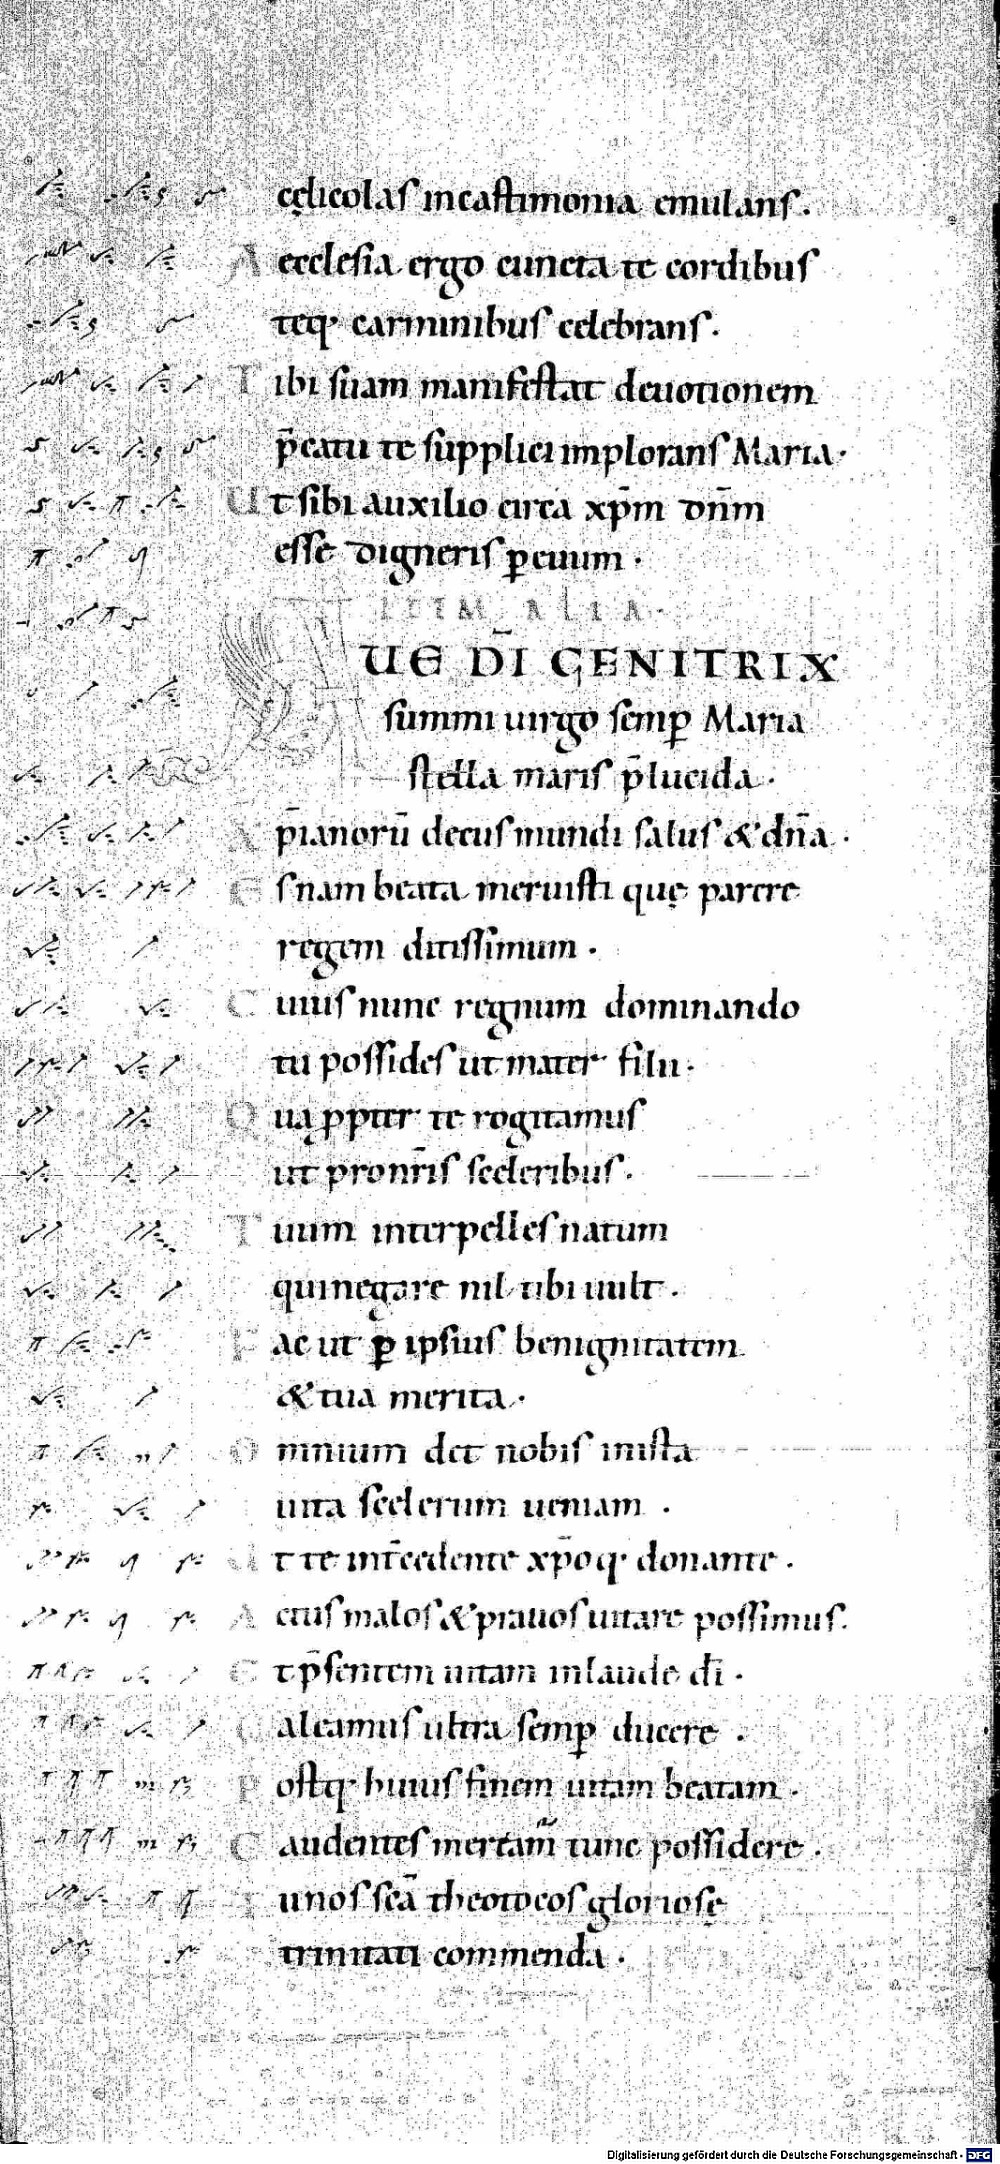 cęlicolas incastimonia emulans.
A ecclesia ergo cuncta te cordibus
teq; carminibus celebrans.
Tibi suam manifestat deuotionem
p̄catu te supplici implorans Maria.
Ut sibi auxilio circa xp̄m dn̄m
esse digneris p̱ euum.
ITEM ALIA.
AUE DI̅ GENITRIX
summi uirgo semp̱ Maria
stella maris p̄lucida.
Xp̄ianorū decus mundi salus & dn̄a.
Es nam beata meruisti quę parere
regem ditissimum.
Cuius nunc regnum dominando
tu possides ut mater filii.
Qua p̱pter te rogitamus
ut pro nr̄is sceleribus.
Tuum interpelles natum
qui negare nil tibi uult.
Fac ut p̱ ipsius benignitatem
& tua merita.
Omnium det nobis in ista
uita scelerum ueniam.
Ut te int̄cedente xp̄oq; donante.
Actus malos & prauos uitare possimus.
Et p̄sentem uitam in laude di̅.
Ualeamus ultra semp̱ ducere.
Postq; huius finem uitam beatam.
Gaudentes mercam̄ tunc possidere.
Tu nos scā theotocos gloriosę
trinitati commenda.
Digitalisierung gefördert durch die Deutsche Forschungsgemeinschaft - DFG